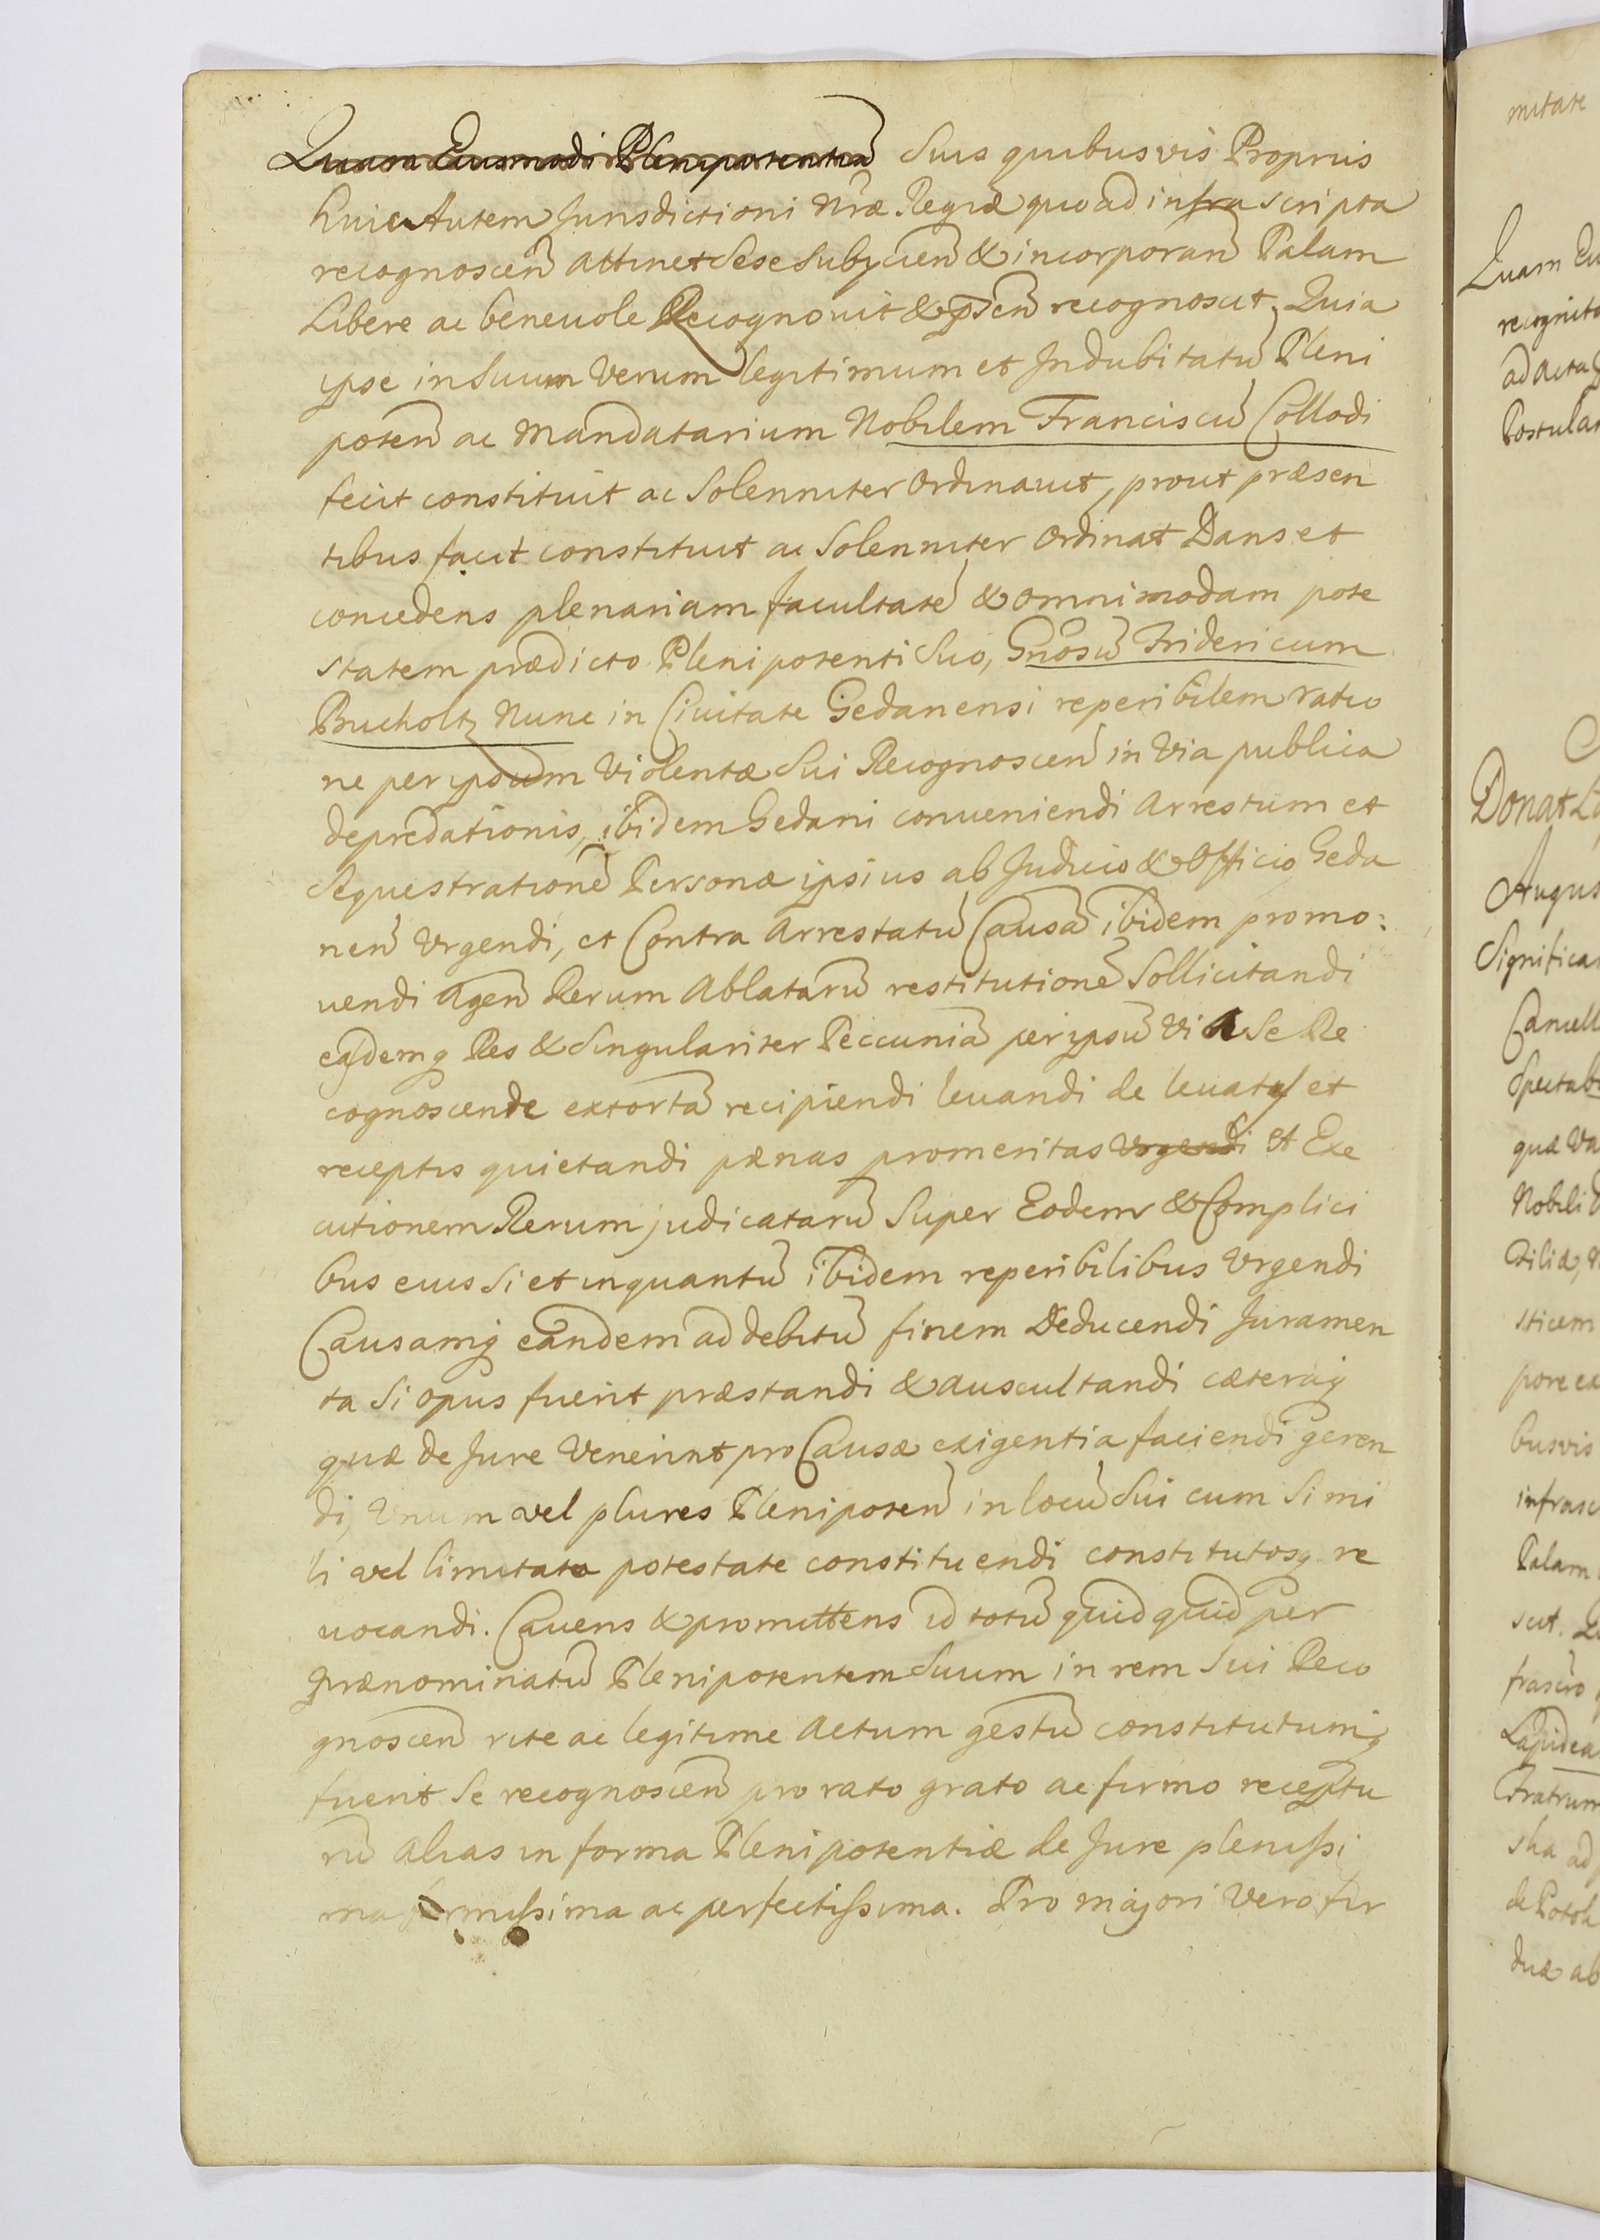 Quam Eiusmodi Plenipotentiã Suis quibusvis Propriis
huic Autem Jurisdictioni Nræ Regiæ quoad infra scripta
recognoscen̄ attinet Sese Subijcien̄ & incorporan̄ Palam
Libere ac beneuole Recognouit & p̄sen̄ recognoscit, Quia
ipse in Suum Verum legitimum et Indubitatū Pleni
poten̄ ac Mandatarium Nobilem Franciscū Collodi
fecit constituit ac Solenniter Ordinauit, prout præsen
tibus facit constituit ac Solenniter Ordinat Dans et
concedens plenariam facultatē & omnimodam pote
statem prædicto Plenipotenti Suo, Gnōsū Fridericum
Bucholtz Nunc in Ciuitate Gedanensi reperibilem ratio
ne per ipsum Violentæ Sui Recognoscen̄ in Via publica
depredationis, ibidem Gedani conueniendi Arrestum et
Sequestrationē Personæ ipsius ab Judicio & Officio Geda
nen̄ Vrgendi, et Contra Arrestatū Causā ibidem promo:
uendi Agen̄ Rerum Ablatarū restitutionē Sollicitandi
easdemq Res & Singulariter Peccuniā per ipsū Vi A Se Re
cognoscende extortā recipiendi leuandi de leuatis et
receptis quietandi pænas promeritas Vrgendi Et Exe
cutionem Rerum judicatarū Super Eodem & Complici
bus eius Si et inquantū ibidem reperibilibus Vrgendi
Causamq eandem ad debitū finem Deducendi Juramen
ta Si opus fuerit præstandi & auscultandi cæteraq
quæ de Jure Venerint pro Causæ exigentia faciendi geren
di, Vnum vel plures Plenipoten̄ in locū Sui cum Simi
li vel limitata potestate constituendi constitutosq re
uocandi. Cauens & promittens id totū quidquid per
prænominatū Plenipotentem Suum in rem Sui Reco
gnoscen̄ rite ac legitime Actum gestū constitutumq
fuerit Se recognoscen̄ pro rato grato ac firmo receptu
rū alias in forma Plenipotentiæ de Jure plenissi
ma firmissima ac perfectissima. Pro majori Vero fir
mitate
Quam Eu
recognita
ad acta
Postulan
Donat
Augus
Significa
Cancell
Specta
quæ Va
Nobili
sticem
pore ex
busvis
infrasc
Palam
scit. Qu
Fratrum
ska ad
de Potok
duæ ab